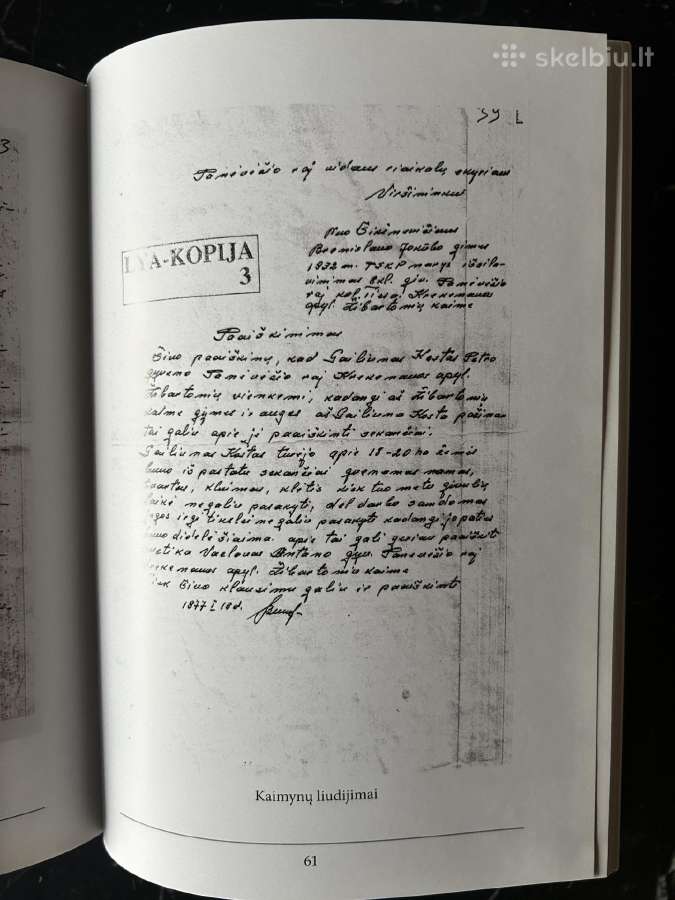 skelbiu.lt
3
59 L
Panevėžio raj vidaus reikalų skyriaus
Viršininkui
LYA-KOPIJA
3
Nuo
Bronislavo Jokūbo gimus
1932 m. TSKP narys išsila-
vinimas 8kl. gyv. Panevėžio
raj. kol. Krekenavos
apyl. Žibartonių kaime
Paaiškinimas
Šiuo paaiškinu, kad Gailiunas Kostas Petro
gyveno Panevėžio raj Krekenavos apyl.
Žibartonių vienkemi, kadangi aš Žibartonių
kaime gymęs ir augęs aš Gailiuną Kostą pažinau
tai galiu apie jį paaiškinti sekančiai.
Gailiunas Kostas turėjo apie 18-20 ha žemės
buvo iš pastatų sekančiai gyvenamas namas,
tvartas, kluimas, klėtis kiek tuo metu givulių
laikė negaliu pasakyti, dėl darbo samdomos
jėgos irgi tiksliai negaliu pasakyti kadangi jo paties
buvo didelė šiaima. apie tai gali geriau paaiškinti
Vaclovas Antano gyv. Panevėžio raj
Krekenavos apyl. Žibartonių kaime
tiek šiuo klausimu galiu ir paaiškinti
1977 I 19d.
Kaimynų liudijimai
61